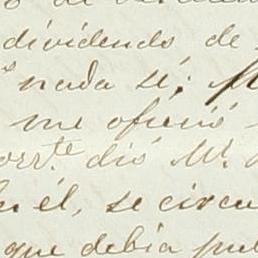 dividendo de
nada sé; M
me ofició
corr.te dió Mr.
él, se circu
que debia pu